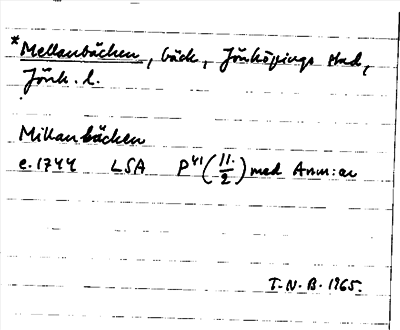 *Mellanbäcken, bäck, Jönköpings stad,
Jönk. l.
Millanbäcken
c. 1744 LSA P41 (11./2) med Anm:ar
T. N. B. 1965.